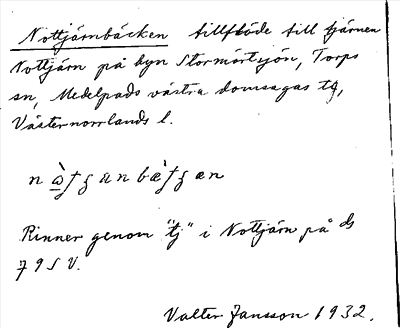 Nottjärnbäcken tillflöde till tjärnen
Nottjärn på byn Stormörtsjön, Torps
sn, Medelpads västra domsagas tg,
Västernorrlands l.
Rinner genom "tj" i Nottjärn på
79 S V.
Valter Jansson 1932.